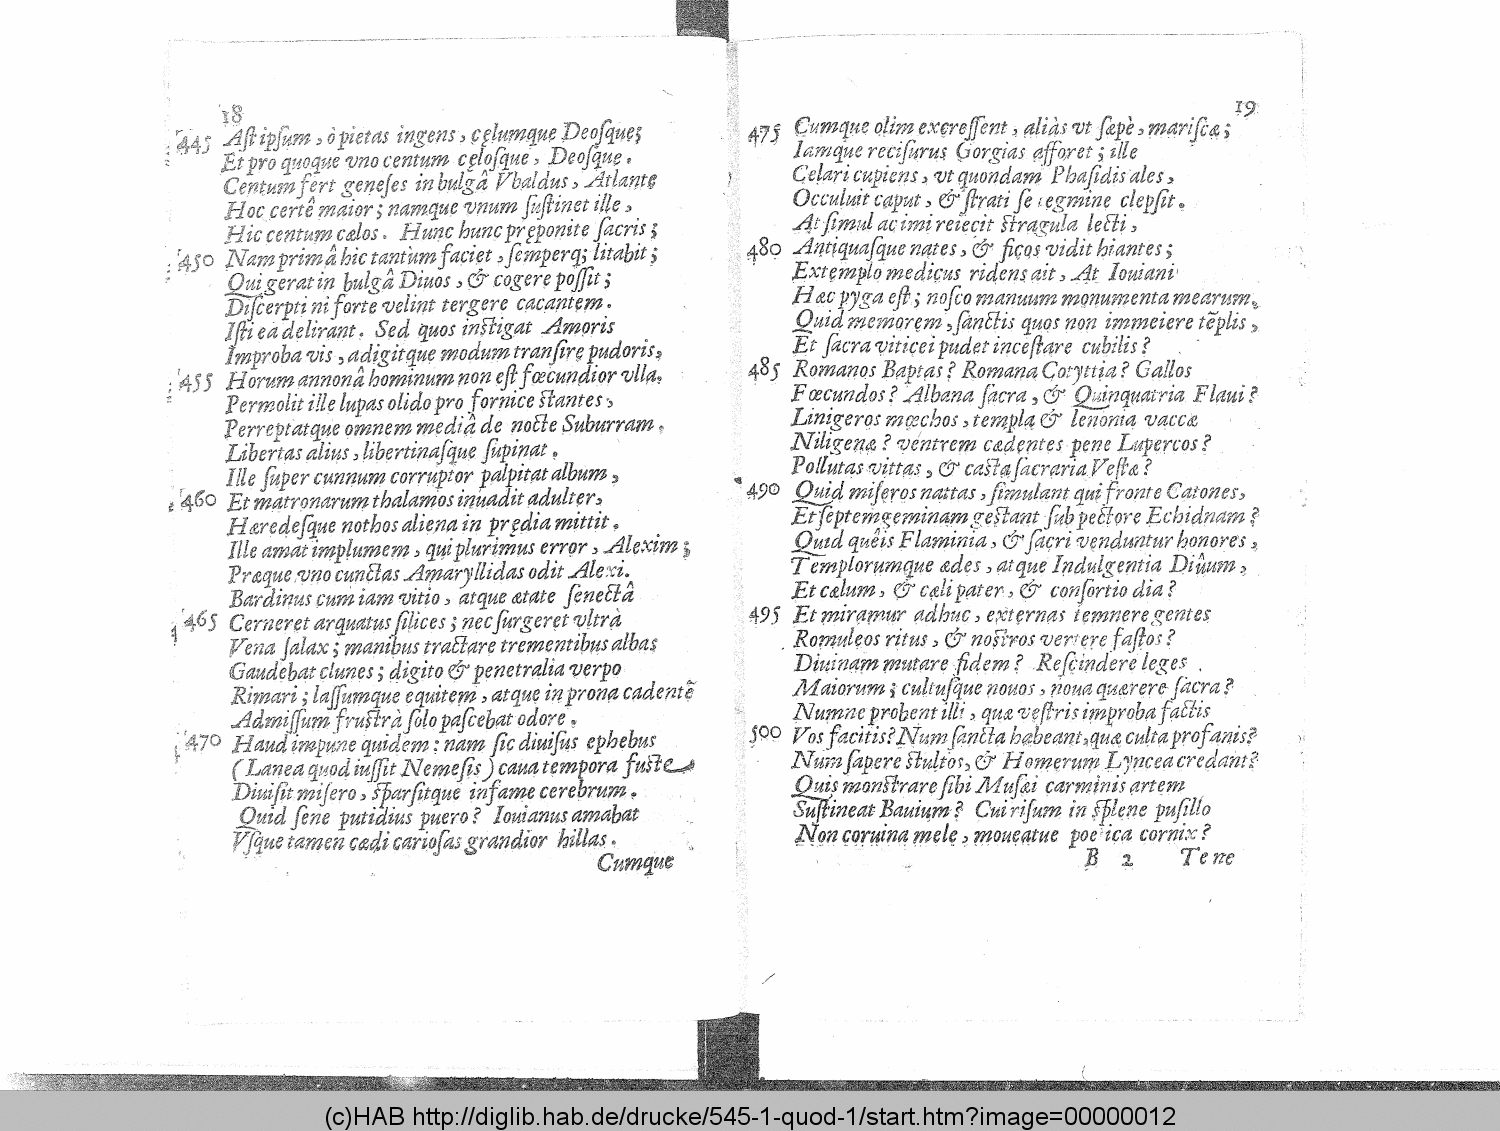 18
445 Aſt ipſum, ò pietas ingens, cęlumque Deoſque;
Et pro quoque vno centum cęloſque, Deoſque.
Centum fert geneſes in bulgâ Vbaldus, Atlante
Hoc certê maior; namque vnum ſuſtinet ille,
Hic centum cælos. Hunc hunc pręponite ſacris;
450 Nam primâ hic tantum faciet, ſemperq; litabit;
Qui gerat in bulgâ Diuos, & cogere poſſit;
Diſcerpti ni forte velint tergere cacantem.
Iſti ea delirant. Sed quos inſtigat Amoris
Improba vis, adigitque modum tranſire pudoris,
455 Horum annonâ hominum non eſt fœcundior vlla.
Permolit ille lupas olido pro fornice ſtantes,
Perreptatque omnem mediâ de nocte Suburram.
Libertas alius, libertinaſque ſupinat.
Ille ſuper cunnum corruptor palpitat album,
460 Et matronarum thalamos inuadit adulter,
Hæredeſque nothos aliena in prędia mittit.
Ille amat implumem, qui plurimus error, Alexim;
Præque vno cunctas Amaryllidas odit Alexi.
Bardinus cum iam vitio, atque ætate ſenectâ
465 Cerneret arquatus ſilices; nec ſurgeret vltrà
Vena ſalax; manibus tractare trementibus albas
Gaudebat clunes; digito & penetralia verpo
Rimari; laſſumque equitem, atque in prona cadentē
Admiſſum fruſtrà ſolo paſcebat odore.
470 Haud impune quidem: nam ſic diuiſus ephebus
(Lanea quod iuſſit Nemeſis) caua tempora fuſte
Diuiſit miſero, ſparſitque infame cerebrum.
Quid ſene putidius puero? Iouianus amabat
Vſque tamen cædi carioſas grandior hillas.
Cumque
19
475 Cumque olim excreſſent, aliàs vt ſæpè, mariſcæ;
Iamque reciſurus Gorgias afforet; ille
Celari cupiens, vt quondam Phaſidis ales,
Occuluit caput, & ſtrati ſe tegmine clepſit.
At ſimul ac imi reiecit ſtragula lecti,
480 Antiquaſque nates, & ficos vidit hiantes;
Extemplo medicus ridens ait, At Iouiani
Hæc pyga eſt; noſco manuum monumenta mearum.
Quid memorem, ſanctis quos non immeiere tēplis,
Et ſacra viticei pudet inceſtare cubilis?
485 Romanos Baptas? Romana Cotyttia? Gallos
Fœcundos? Albana ſacra, & Quinquatria Flaui?
Linigeros mœchos, templa & lenonia vaccæ
Niligenæ? ventrem cædentes pene Lupercos?
Pollutas vittas, & caſta ſacraria Veſtæ?
490 Quid miſeros nattas, ſimulant qui fronte Catones,
Et ſeptemgeminam geſtant ſub pectore Echidnam?
Quid quêis Flaminia, & ſacri venduntur honores,
Templorumque ædes, atque Indulgentia Diûum,
Et cælum, & cæli pater, & conſortio dia?
495 Et miramur adhuc, externas temnere gentes
Romuleos ritus, & noſtros vertere faſtos?
Diuinam mutare fidem? Reſcindere leges
Maiorum; cultuſque nouos, noua quærere ſacra?
Numne probent illi, quæ veſtris improba factis
500 Vos facitis? Num ſancta habeant, quæ culta profanis?
Num ſapere ſtultos, & Homerum Lyncea credant?
Quis monſtrare ſibi Muſæi carminis artem
Suſtineat Bauium? Cui riſum in ſplene puſillo
Non coruina mele, moueatue poetica cornix?
B 2 Tene
(c)HAB http://diglib.hab.de/drucke/545-1-quod-1/start.htm?image=00000012